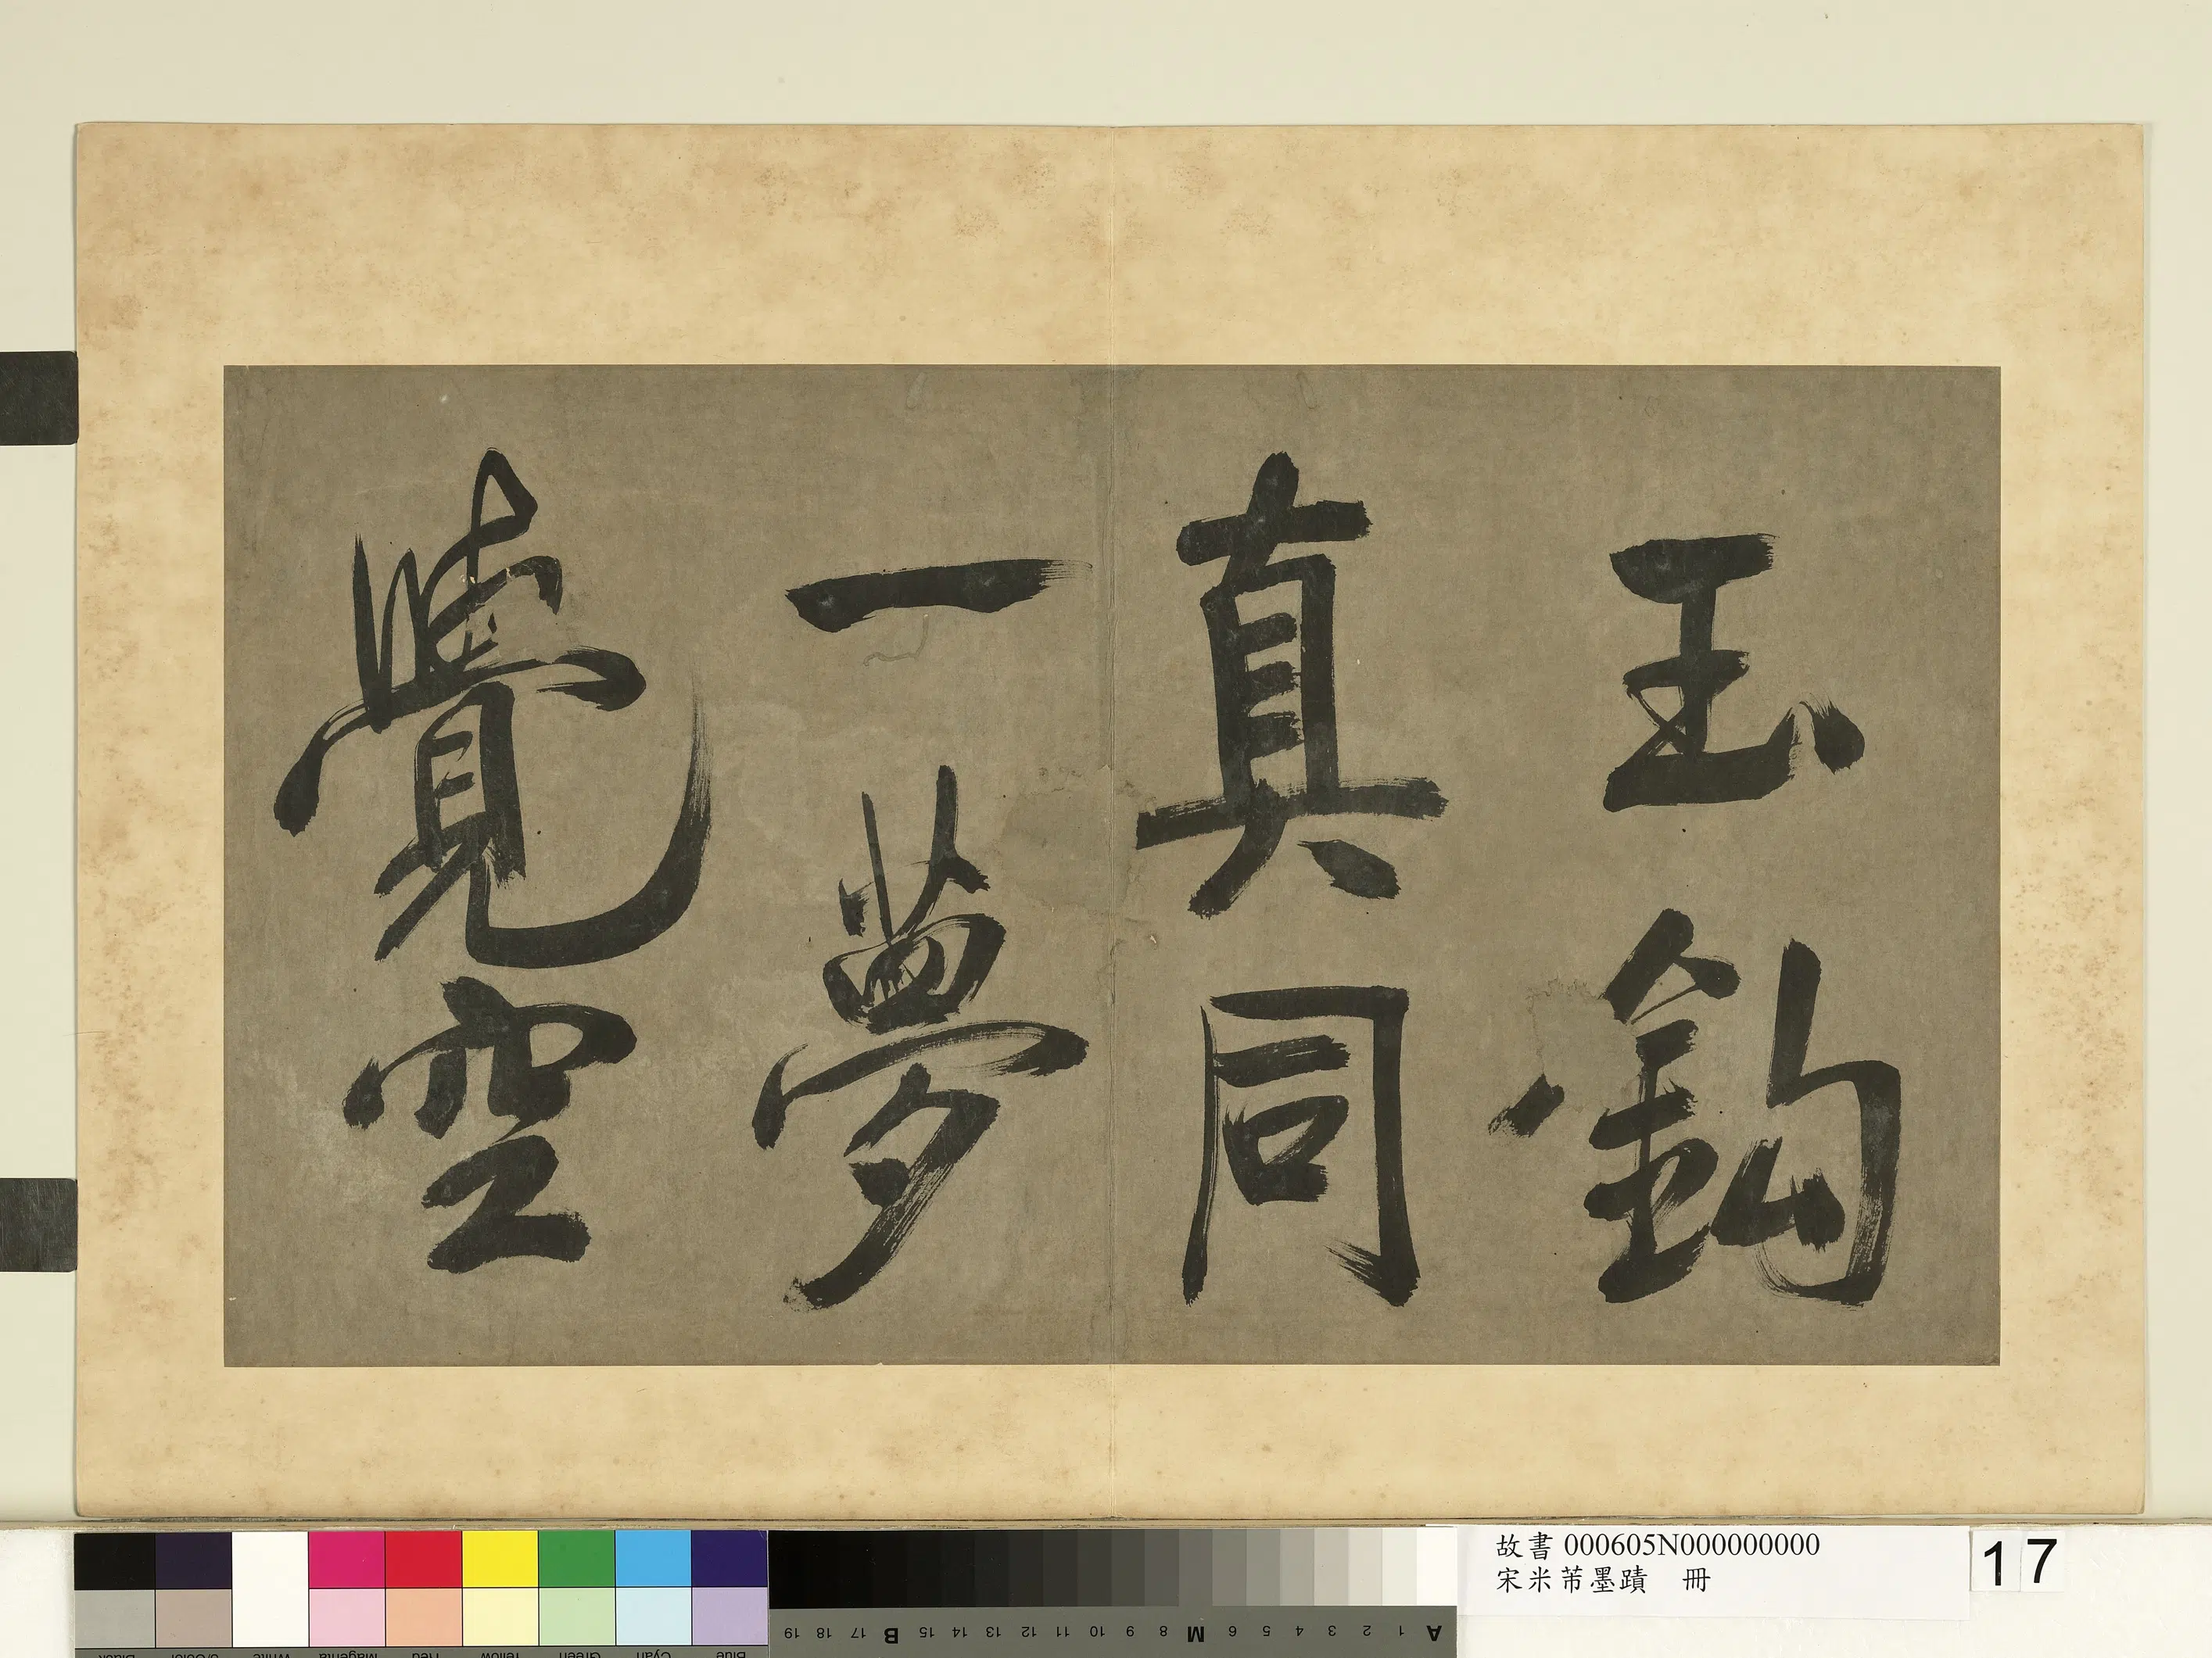 玉鈎
真同
一夢
覺空
故書 000605N000000000
宋米芾墨蹟 冊
17
A 1 2 3 4 5 6 M 8 9 10 11 12 13 14 15 B 17 18 19
Blue Cyan Green Yellow Red Magenta White 3/Color Black